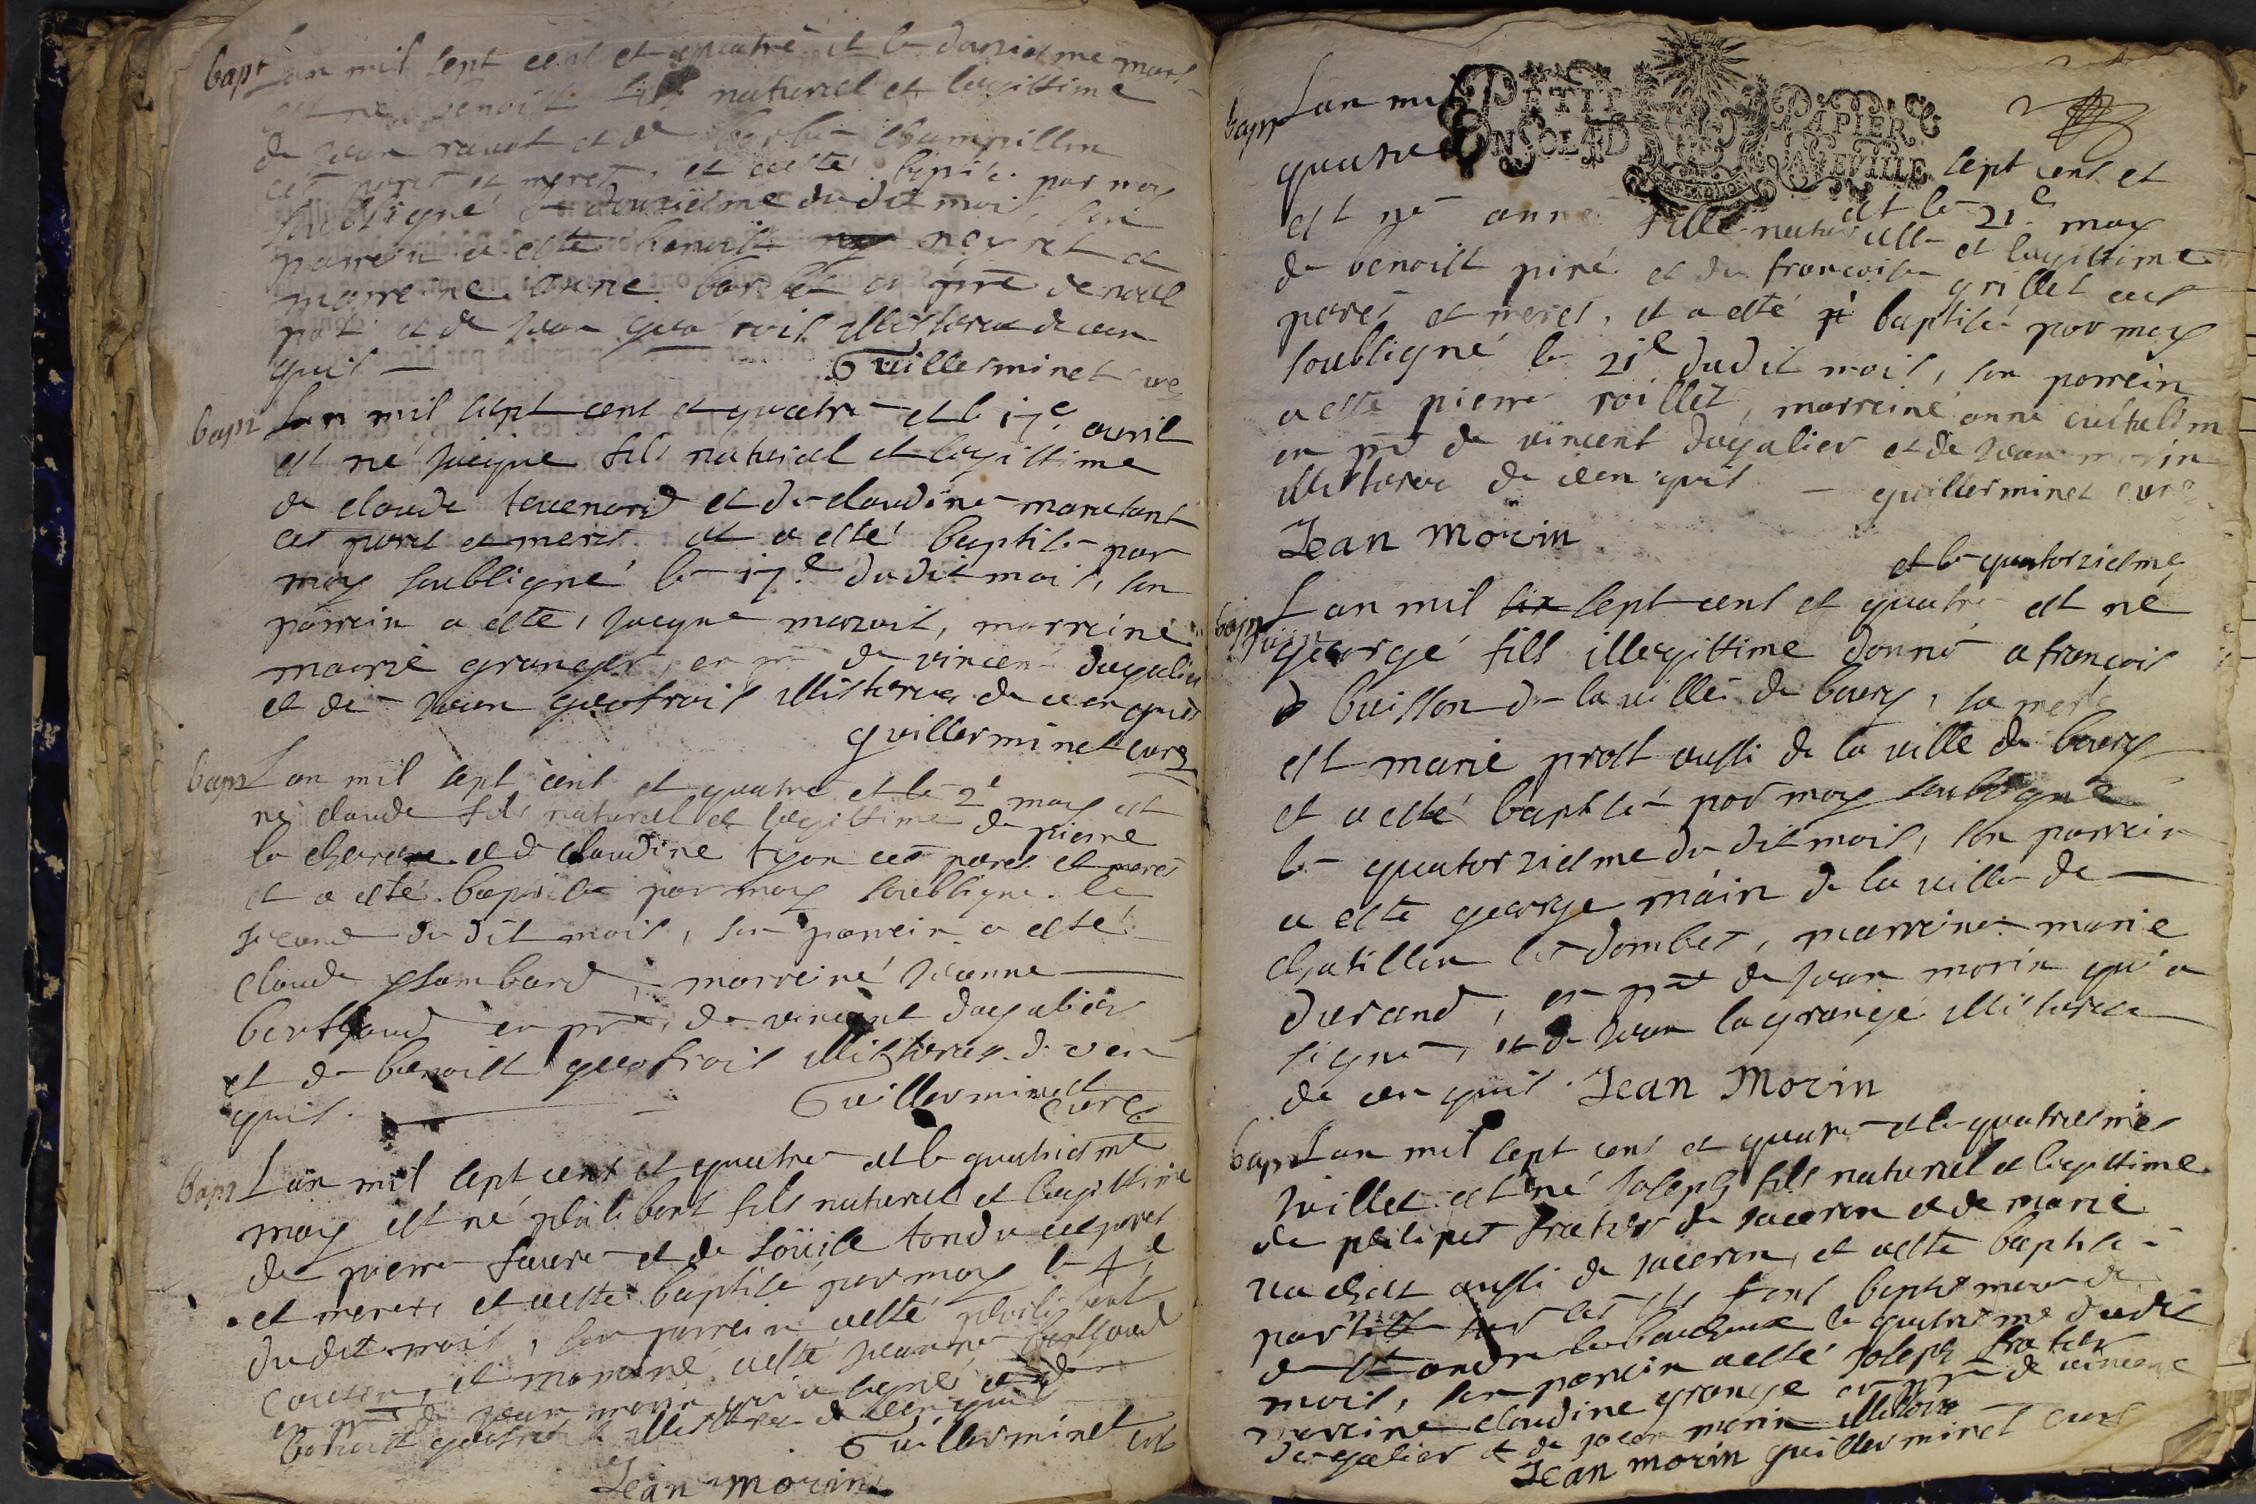 bapt Lan mil sept cent et quatre et le douziesme mars
est né benoist fils naturel et legittime
de jean ravot et de champillon
ces peres et meres, et a esté baptisé par moy
soubsigné le douziesme dudit mois son
parrein a esté benoist neyret et
marreine anne en pnce de noel
et de jean geofrois illisteres de ce en
quis Guillerminet curé
bapt Lan mil sept cent et quatre et le 17e avril
est né jacque fils naturel et legittime
de claude tevenard et de claudine
ces peres et meres et a esté baptisé par
moy soubsigné le 17e dudit mois, son
parrein a esté, jacque maroit, marreine
marie granger, en pnce de vincent dagalier
et de jean geofrois illisteres de ce en quis
guillerminet curé
bapt Lan mil sept cent et quatre et le 2e may est
né claude fils naturel et legittime de pierre
la et de claudine tyon ces peres et meres
et a esté baptisé par moy soubsigné le
second du dit mois, son parrein a esté
claude plombard, marreine jeanne
berthoud en pnce, de vincent dagalier
et de benoist geofrois illisteres de ce en
quis. Guillerminet
curé
bapt Lan mil sept cent et quatre et le quatriesme
may est né philibert fils naturel et legittime
de pierre favre et de loüise tondu ces peres
et meres, et a esté baptisé par moy le 4e
dudit mois, son parrein a esté philibert
cousin, et marreine a esté jeanne berthoud
en pnce de jean morin qui a signé et de
benoist geofrois illisteres de ce en quis
Guillerminet curé
Jean morin
PETIT PAPIER
EN SOL 4D LA FEVILLE
bapt Lan mil sept cent et
quatre et le 21e may
est né anne fille naturelle et legittime
de benoist piné et de francoise grillet ces
peres et meres, et a esté baptisé par moy
soubsigné le 21e dudit mois, son parrein
a esté pierre roillet, marreine anne
en pnce de vincent dagalier et de jean morin
illisteres de ce en quis guillerminet curé
Jean Morin
et le quatorziesme
bapt Lan mil six sept cent et quatre est né
juin george fils illegittime donné a françois
buisson de la ville de bourg, sa mere
est marie prost aussi de la ville de bourg
et a esté baptisé par moy soubsigné
le quatorziesme du dit mois, son parrein
a esté george main de la ville de
chatillon les dombes, marreine marie
durand, en pnce de jean morin qui a
signé, et de jean lagrange illisteres
de ce en quis. Jean Morin
bapt Lan mil sept cent et quatre et le quatriesme
juillet est né joseph fils naturel et legittime
de philipes frater de jaceron et de marie
vachet aussi de jaceron, et a esté baptisé
par moy sur les fons baptismaux de
de st andre le bouchoux le quatriesme dudit
mois, son parrein a esté joseph frater
marreine claudine grange en pnce de vincent
dagalier et de jean morin illisteres
Jean morin guillerminet curé